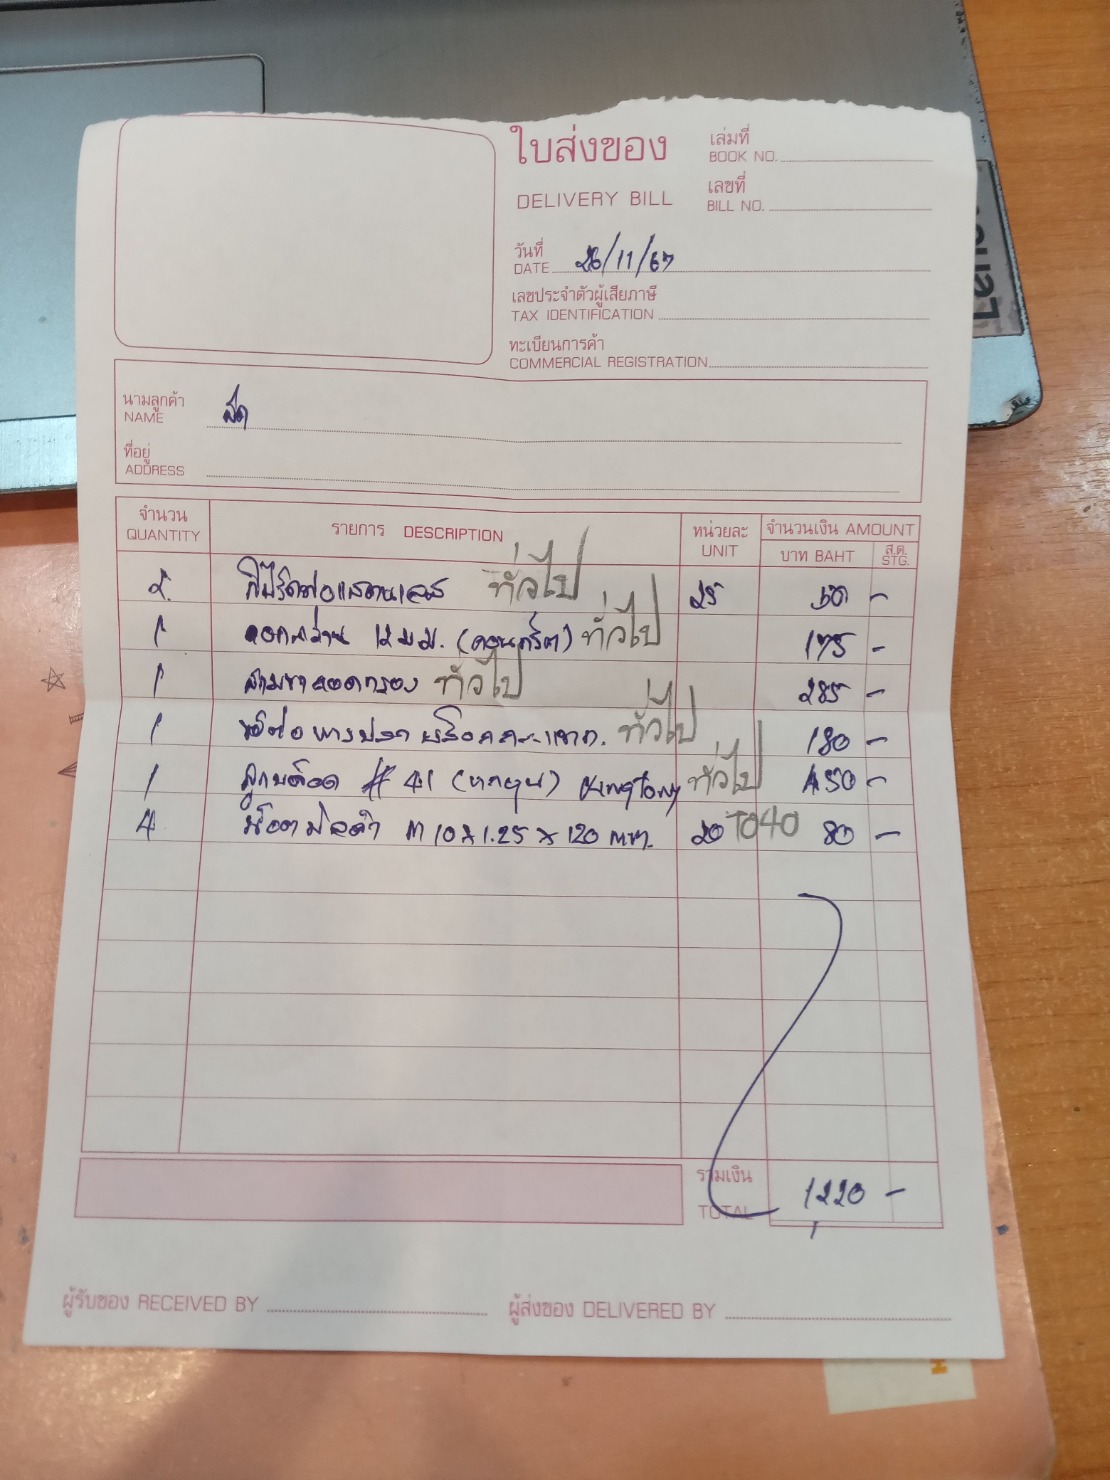 ใบส่งของ
DELIVERY BILL
เล่มที่
BOOK NO.
เลขที่
BILL NO.
วันที่
DATE 26/11/67
เลขประจำตัวผู้เสียภาษี
TAX IDENTIFICATION
ทะเบียนการค้า
COMMERCIAL REGISTRATION
Leno
นามลูกค้า
NAME สด
ที่อยู่
ADDRESS
จำนวน รายการ DESCRIPTION หน่วยละ จำนวนเงิน AMOUNT
QUANTITY UNIT บาท BAHT ส.ต. STG.
2 ทั่วไป 25 50 -
1 ดอกสว่าน 12 ม.ม. (คอนกรีต) ทั่วไป 175 -
1 สามขาถอดกรอง ทั่วไป 285 -
1 ทั่วไป 180 -
1 ลูกบล็อก # 41 (หกมุม) Kingtony ทั่วไป 450 -
4 น็อตมิลดำ m 10 x 1.25 x 120 mm. 20 TO40 80 -
รวมเงิน
TOTAL 1220 -
ผู้รับของ RECEIVED BY ผู้ส่งของ DELIVERED BY
H